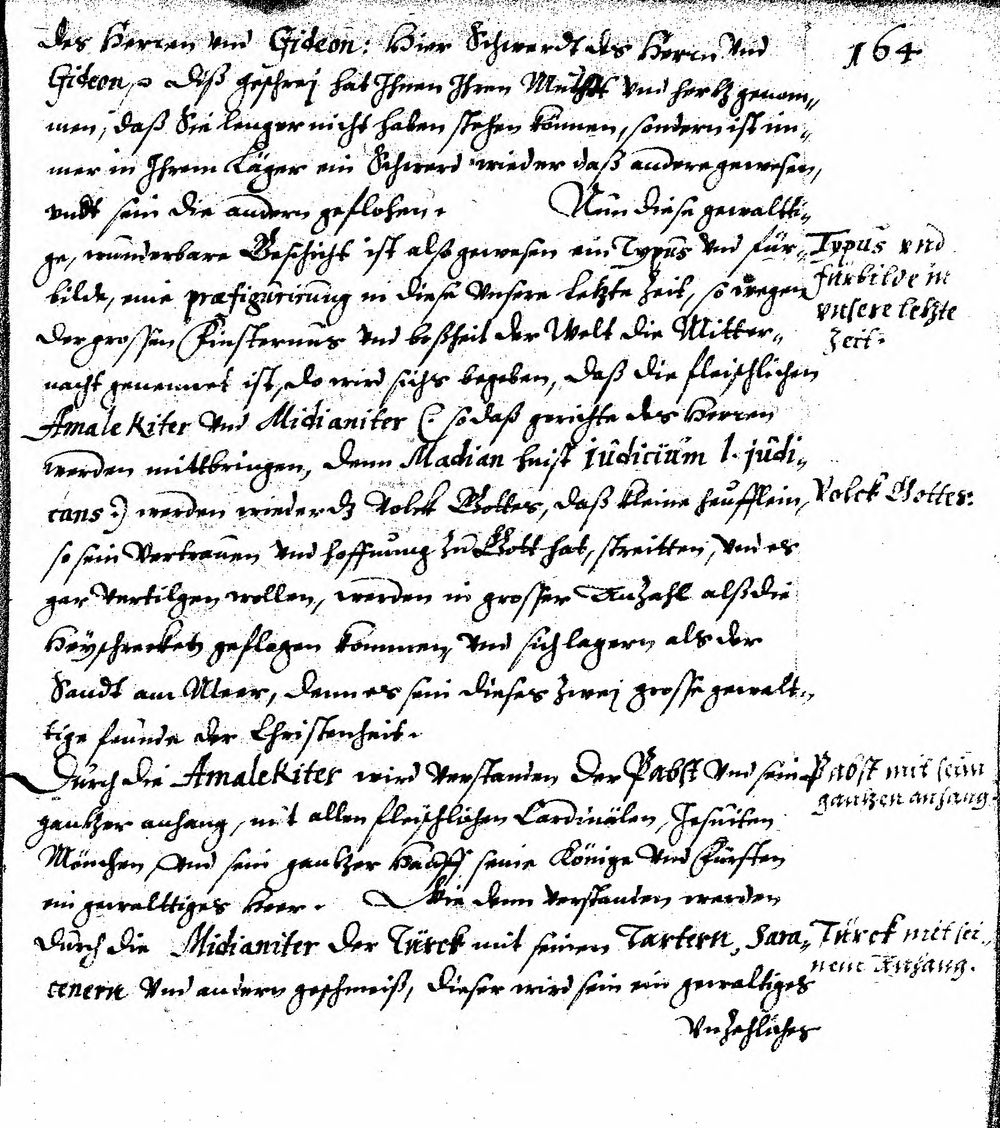 des Herren vnd Gideon: Hier Schwerdt des Herrn vnd
164
Gideon, diß geschrej hat Ihnen Ihren Muth vnd hertz genom-
men, daß Sie lenger nicht haben stehen können, sondern ist im-
mer in Ihrem Läger ein Schwerd wieder daß andere gewesen,
vndt sein die andern geflohen. Nun diese gewaltti-
ge, wunderbare Geschicht ist also gewesen ein Typus vnd für-
bilde, eine præfigurirung in diese vnsere letzte Zeit, so wegen
der grossen Finsternus vnd boßheit der Welt die Mitter-
nacht genennet ist, do wird sichs begeben, daß die fleischlichen
Amalekiter vnd Midianiter (: so daß gerichte des Herren
werden mittbringen, denn Madian heist judicium l. judi-
cans:) werden wieder dz Volck Gottes, daß kleine heufflein,
so sein Vertrauen vnd hoffnung zu Gott hat, streitten, vnd es
gar vertilgen wollen, werden in grosser Anzahl alß die
Heyschrecken geflogen kommen, vnd sich lagern als der
Sandt am Meer, denn es sein dieses zwej grosse gewalt-
tige feinde der Christenheit.
Durch die Amalekiter wird verstanden der Pabst vnd sein
gantzer anhang, mit allen fleischlichen Cardinälen, Jesuiten
Mönchen, vnd sein gantzer Hauff seine Könige vnd Fürsten
ein gewalttiges Heer. Wie denn verstanden werden
durch die Midianiter der Türck mit seinen Tartern, Sara-
cenern vnd andern geschmeiß, dieser wird sein ein gewaltiges
vnzehliches
Typus vnd
fürbilde in
vnsere letzte
Zeit.
Volck Gottes:
Pabst mit seim
gantzen anhang.
Türck mit sei-
nem Anhang.